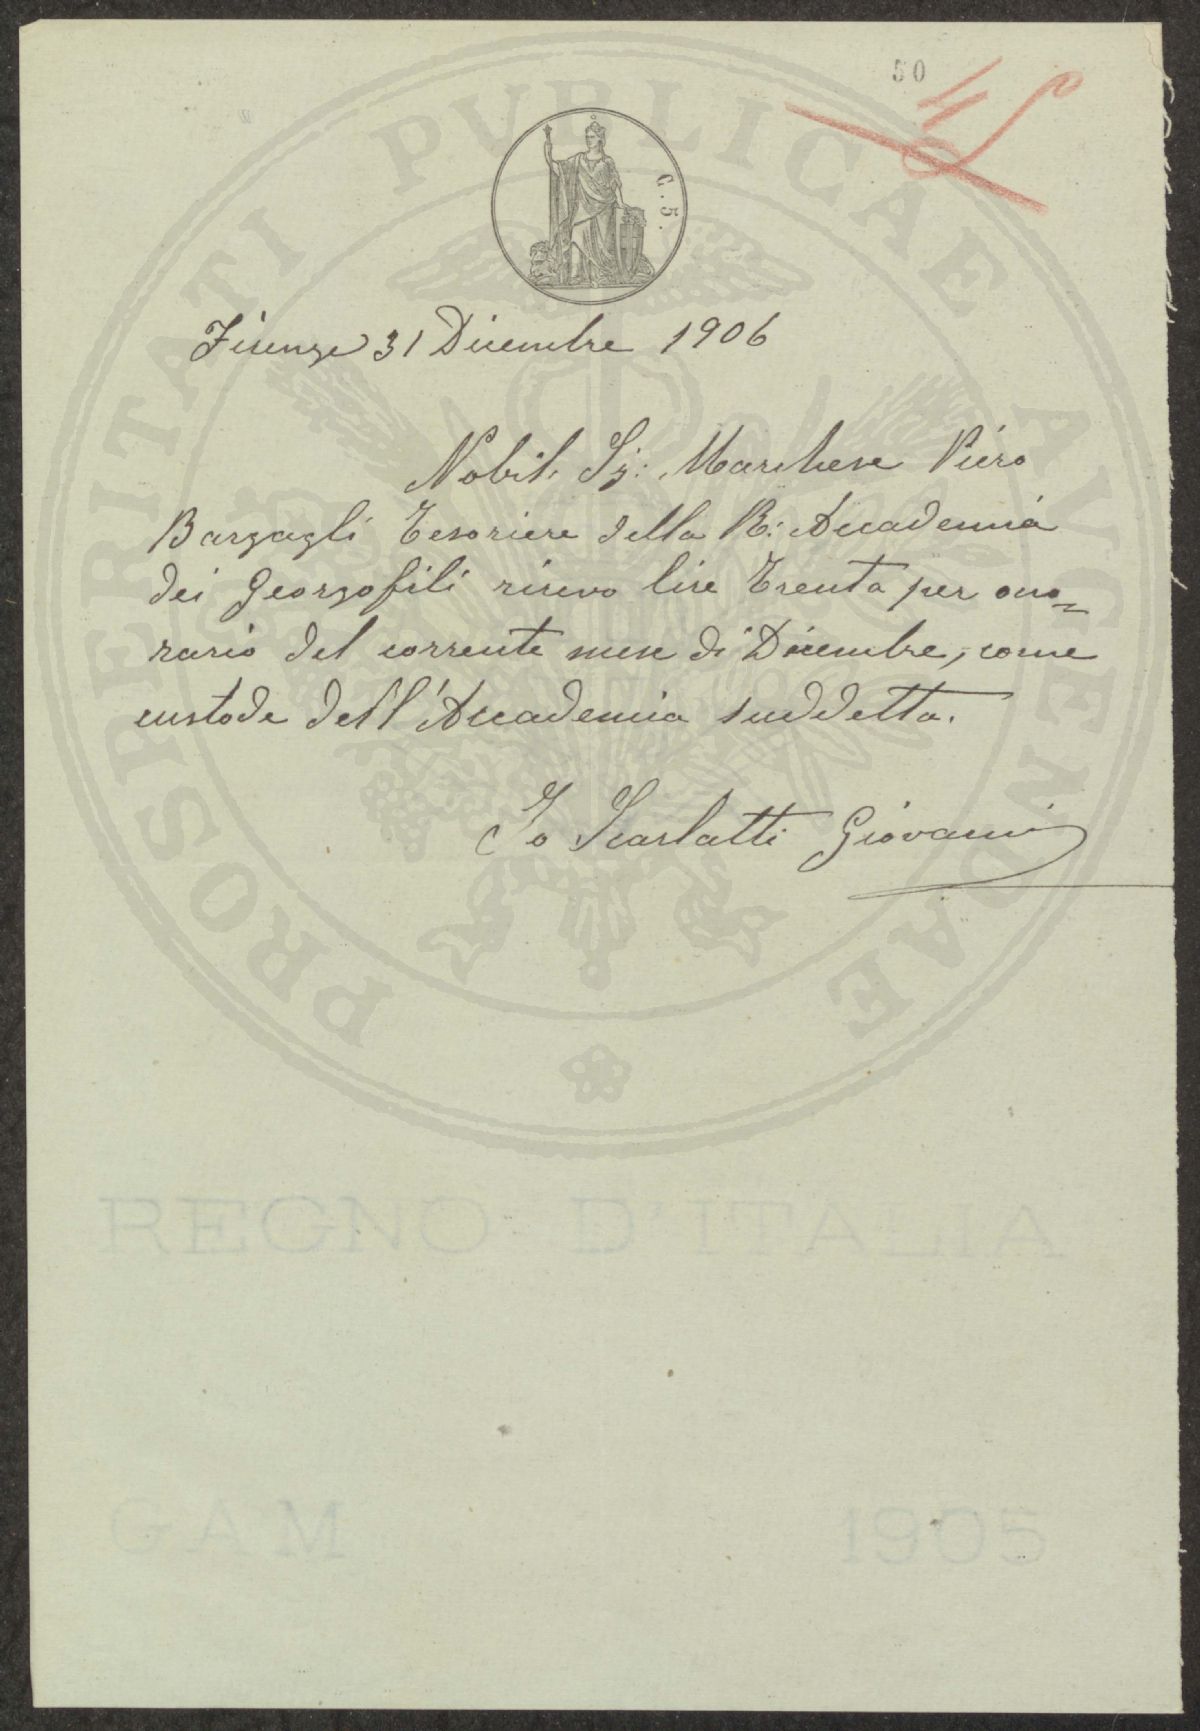 50
45
G. 5.
PROSPERITATI PVBLICAE AVGENDAE
Firenze 31 Dicembre 1906
Nobil. Sig: Marchese Piero
Bargagli Tesoriere della R: Accademia
dei Georgofili ricevo lire Trenta per ono=
rario del corrente mese di Dicembre, come
custode dell'Accademia suddetta.
Io Scarlatti Giovanni
REGNO D'ITALIA
GAM 1905